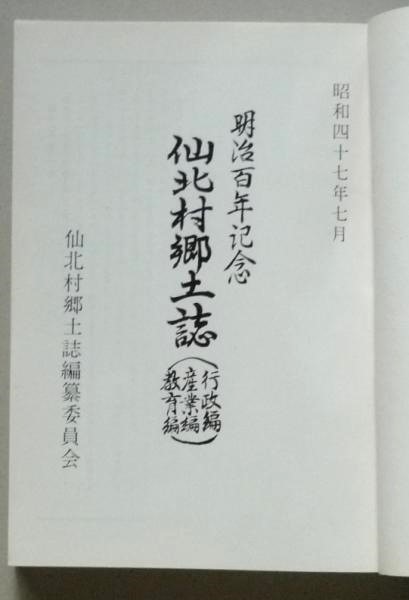 昭和四十七年七月
明治百年記念
仙北村郷土誌
(行政編
産業編
教育編)
仙北村郷土誌編纂委員会